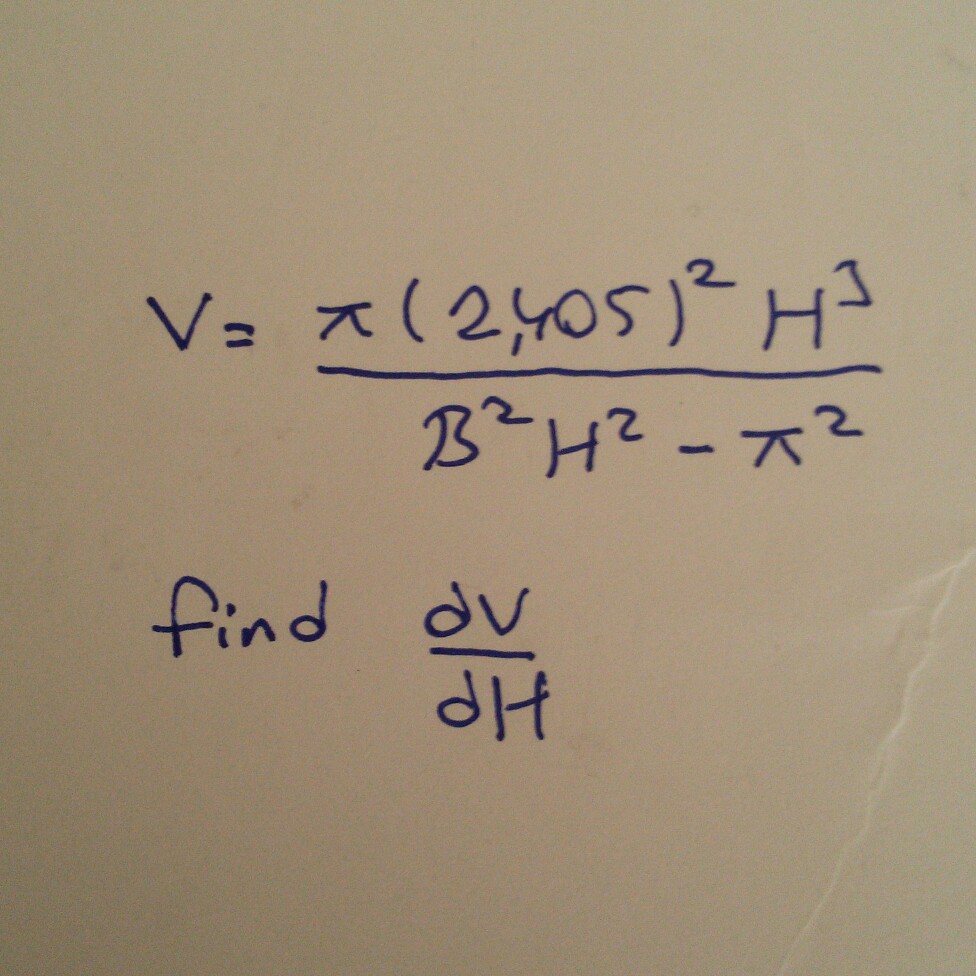 V= π(2,405)² H³ / B²H² - π²
find dV/dH